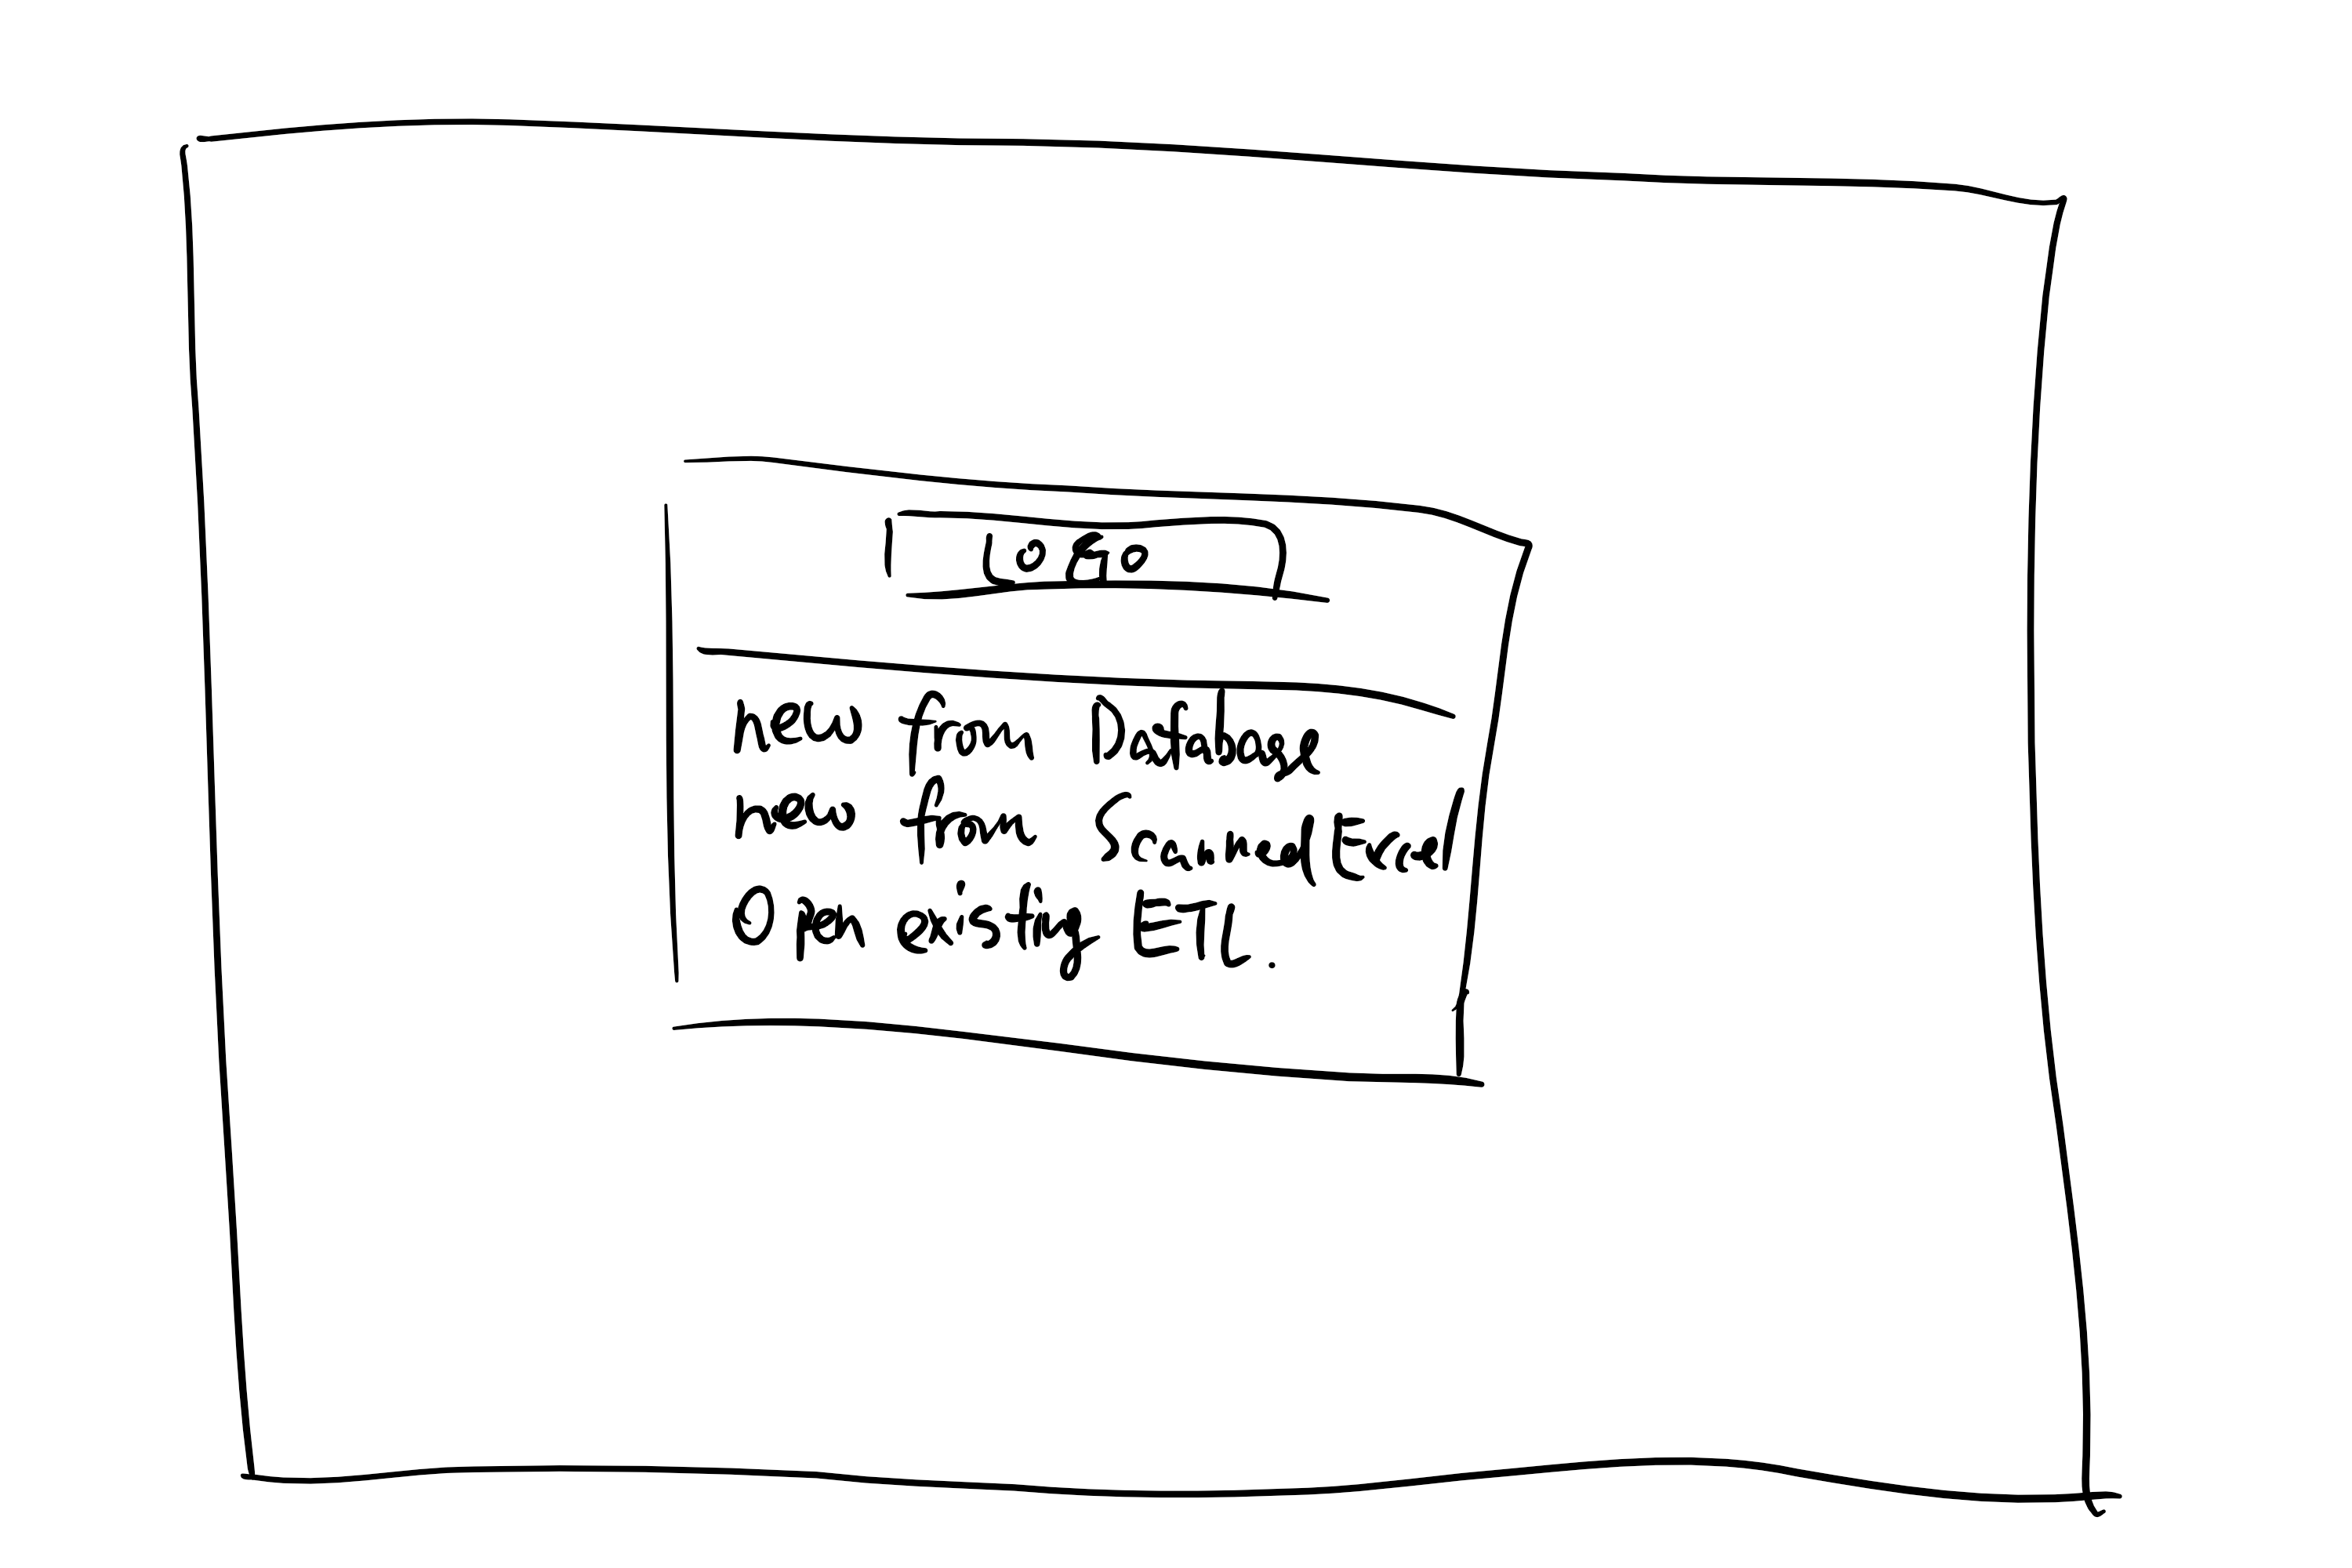 LOGO
new from Database
new from Scanned(Excel)
Open existing ETL.